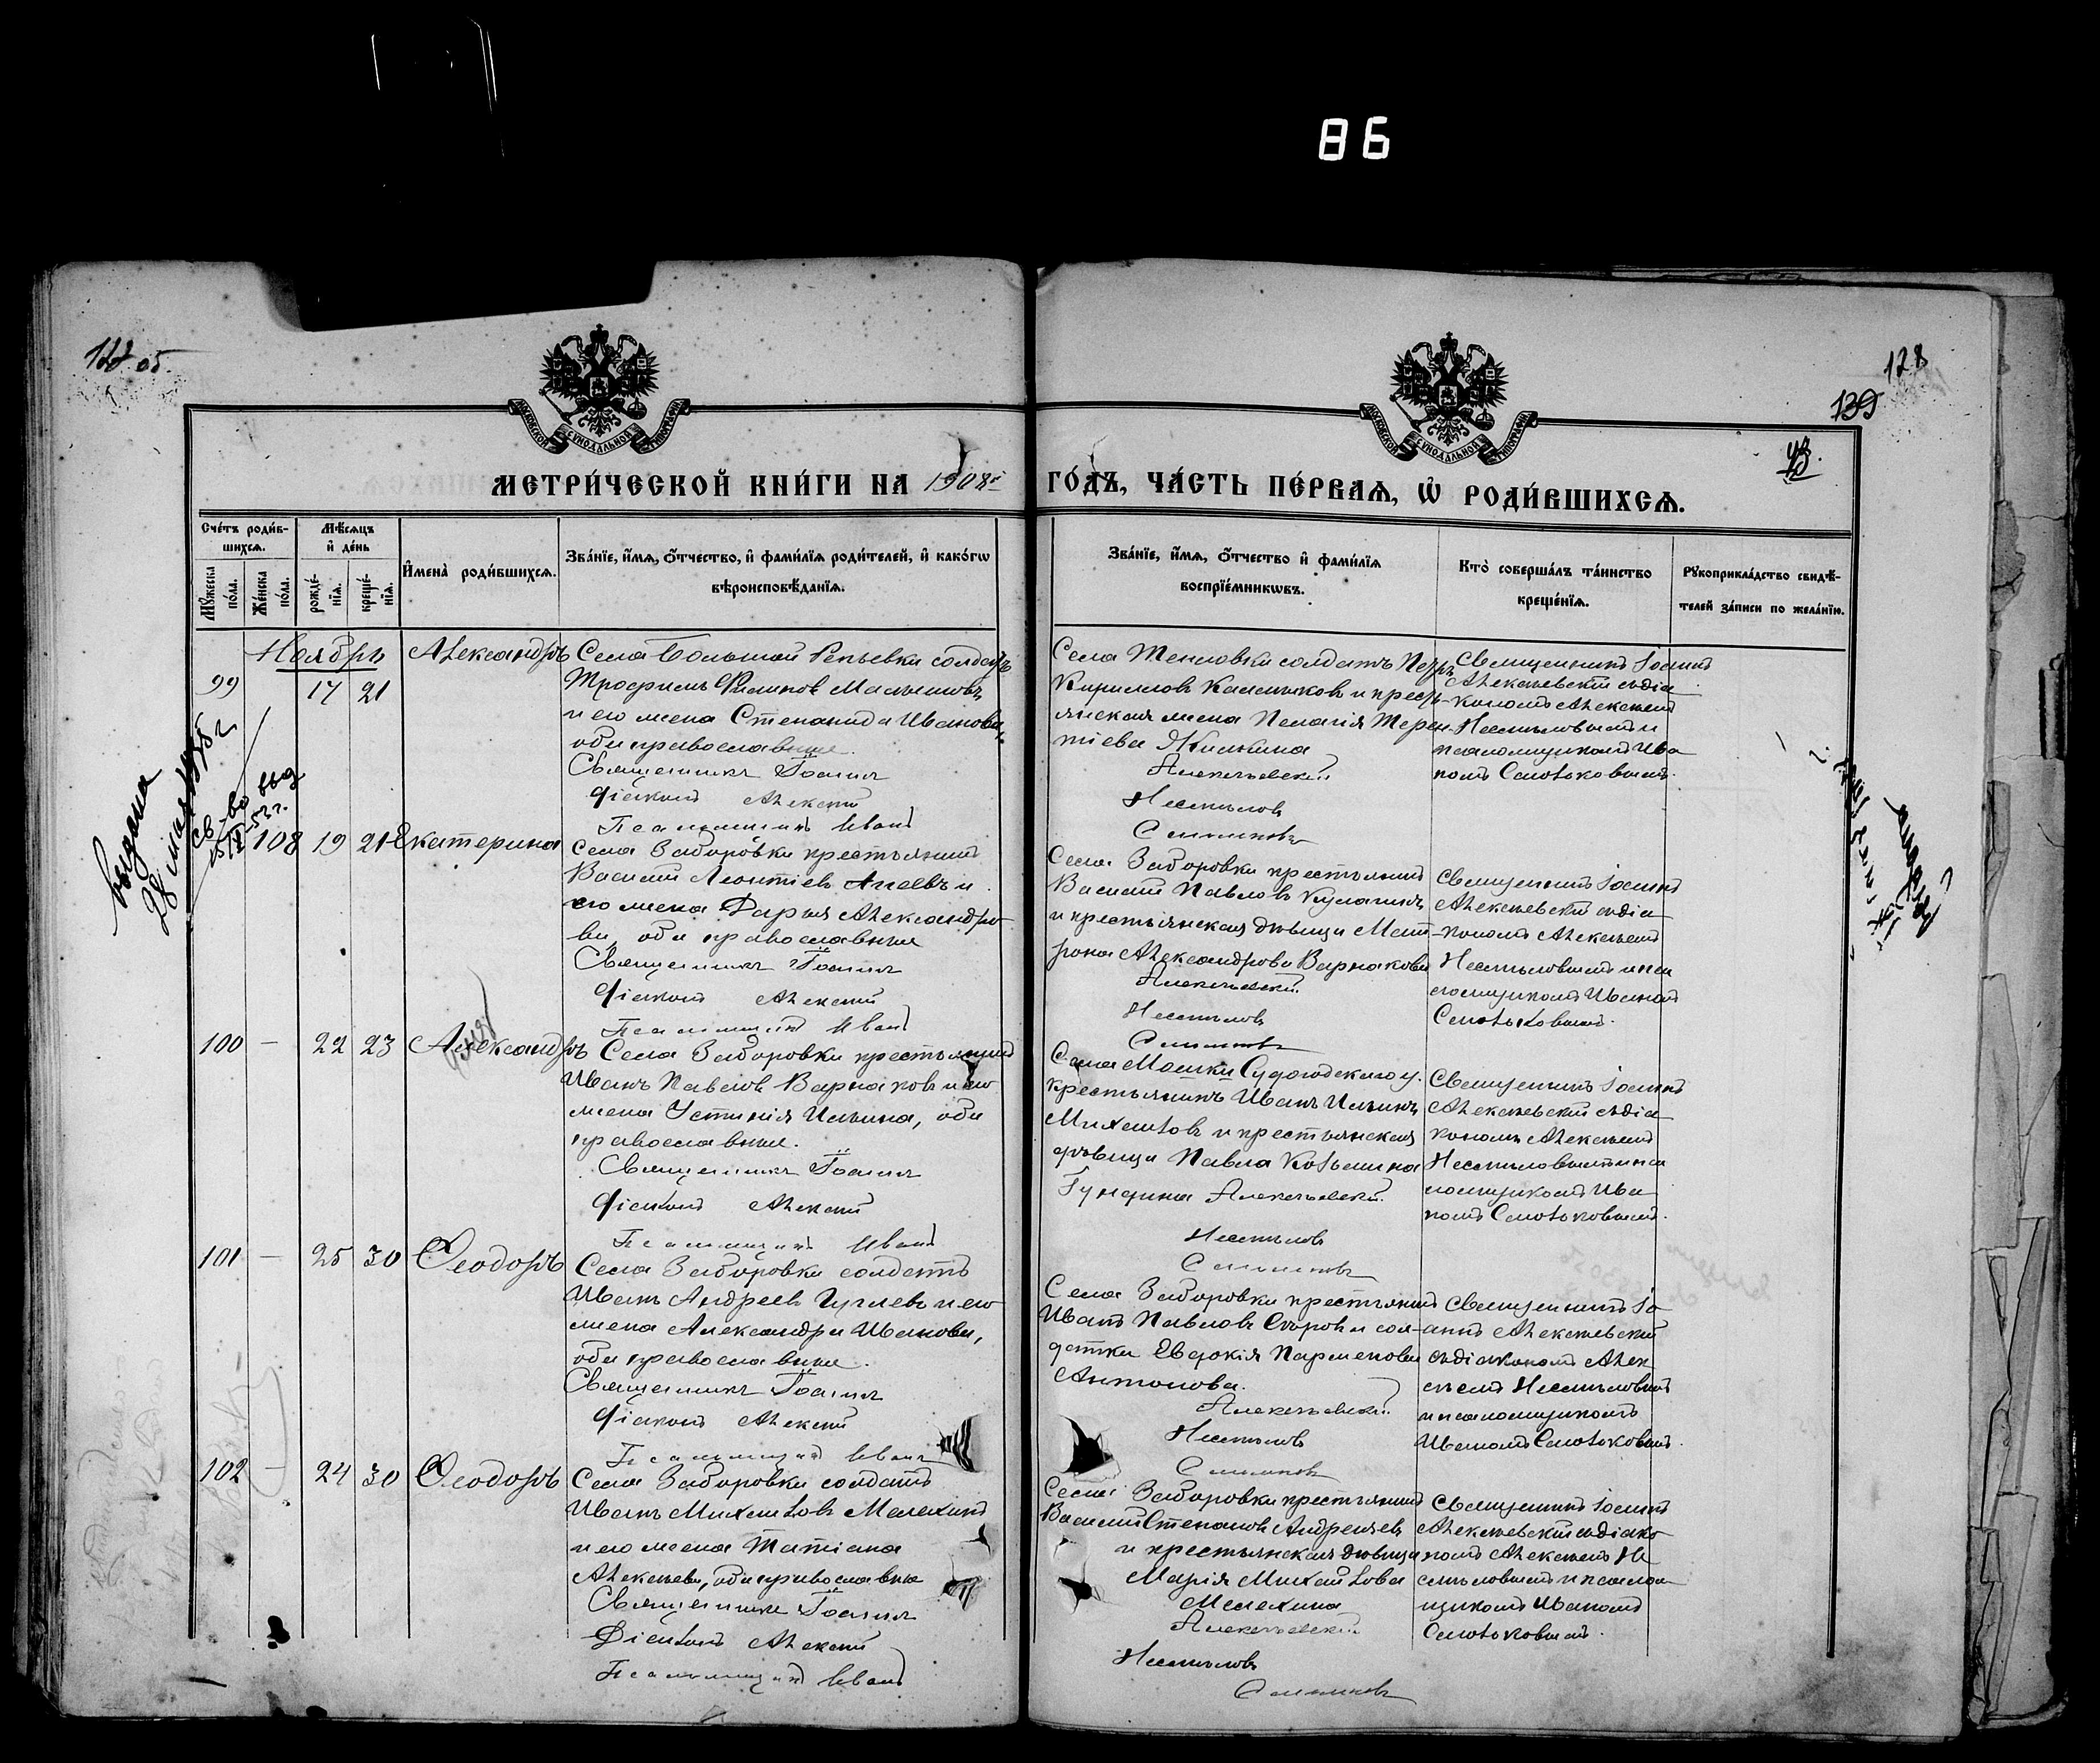 86
об.
128
139
МОСКОВСКОЙ СѴНОДАЛЬНОЙ ТИПОГРАФІИ
МОСКОВСКОЙ СѴНОДАЛЬНОЙ ТИПОГРАФІИ
МЕТРИ́ЧЕСКОЙ КНИ́ГИ НА 1908й ГО́ДЪ, ЧА́СТЬ ПЕ́РВАѦ, Ѡ҆ РОДИ́ВШИХСѦ.
Сче́тъ роди́в-
шихсѧ.
Мꙋ́жеска по́ла.
Же́нска по́ла.
Мѣ́сѧцъ
и҆ де́нь
рожде́-
нїѧ.
креще́-
нїѧ.
И҆мена̀ роди́вшихсѧ.
Зва́нїе, и҆́мѧ, ѻ҆́тчество, и҆ фами́лїѧ роди́телей, и҆ како́гѡ
вѣроисповѣ́данїѧ.
Зва́нїе, и҆́мѧ, ѻ҆́тчество и҆ фами́лїѧ
воспрїе́мникѡвъ.
Кто̀ соверша́лъ та́инство
креще́нїѧ.
Рꙋкоприкла́дство свидѣ́-
телей за́писи по жела́нїю.
Ноябрь
99 17 21 Александръ
Села Большой Репьевки солдатъ
Трофимъ Филипов Малышовъ
и его жена Степанида Иванова,
оба православные.
Священникъ Іоаннъ
Діаконъ Алексій
Псаломщикъ Иванъ
Села Тепловки солдатъ Петръ
Кириллов Калашников и кресть-
янская жена Пелагія Терен-
тіева Жилкина
Алексѣевскій
Несмѣлов
Священникъ Іоаннъ
Алексѣевскій съ діа-
кономъ Алексѣемъ
Несмѣловымъ и
псаломщикомъ Ива
номъ
выдана
28 мая 1935 г
св-во выд
108 19 21 Екатерина
Села Заборовки крестьянинъ
Василій Леонтіев Агеевъ и
его жена Дарья Александро-
ва, оба православные
Священникъ Іоаннъ
Діаконъ Алексій
Псаломщикъ Иванъ
Села Заборовки крестьянинъ
Василій Павловъ Кулагинъ
и крестьянская дѣвица Мат-
рона Александрова Варнакова
Алексѣевскій
Несмѣлов
Священникъ Іоаннъ
Алексѣевскій съ діа-
кономъ Алексѣемъ
Несмѣловымъ и пса
ломщикомъ Иваномъ
100 — 22 23 Александръ
Села Заборовки крестьянинъ
Иванъ Павлов Варнаков и его
жена Устинія Ильина, оба
православные.
Священникъ Іоаннъ
Діаконъ Алексій
Псаломщикъ Иванъ
Села Мошки Судогодскаго у.
крестьянинъ Иванъ Ильинъ
Михайлов и крестьянская
дѣвица Павла Козьмина
Алексѣевскій
Несмѣлов
Священникъ Іоаннъ
Алексѣевскій съ діа
кономъ Алексѣемъ
Несмѣловымъ и пса
ломщикомъ Ива
номъ
101 — 25 30 Ѳеодоръ
Села Заборовки солдатъ
Иванъ Андреев и его
жена Александра Иванова,
оба православные.
Священникъ Іоаннъ
Діаконъ Алексій
Псаломщикъ Иванъ
Села Заборовки крестьянинъ
Иванъ Павловъ Егоров и сол-
датка Евдокія Парменова
Антонова.
Алексѣевскій
Несмѣлов
Священникъ Іо-
аннъ Алексѣевскій
съ діакономъ Алек
сѣемъ Несмѣловымъ
и псаломщикомъ
Иваномъ
102 — 24 30 Ѳеодоръ
Села Заборовки солдатъ
Иванъ Михайлов Малехинъ
и его жена Татіана
Алексѣева, оба православные
Священникъ Іоаннъ
Діаконъ Алексій
Псаломщикъ Иванъ
Села Заборовки крестьянинъ
Василій Степанов Андреяшев
и крестьянская дѣвица
Марія Михайлова
Малехина
Алексѣевскій
Несмѣлов
Священникъ Іоаннъ
Алексѣевскій съ діако
номъ Алексѣемъ Не
смѣловымъ и псалом
щикомъ Иваномъ